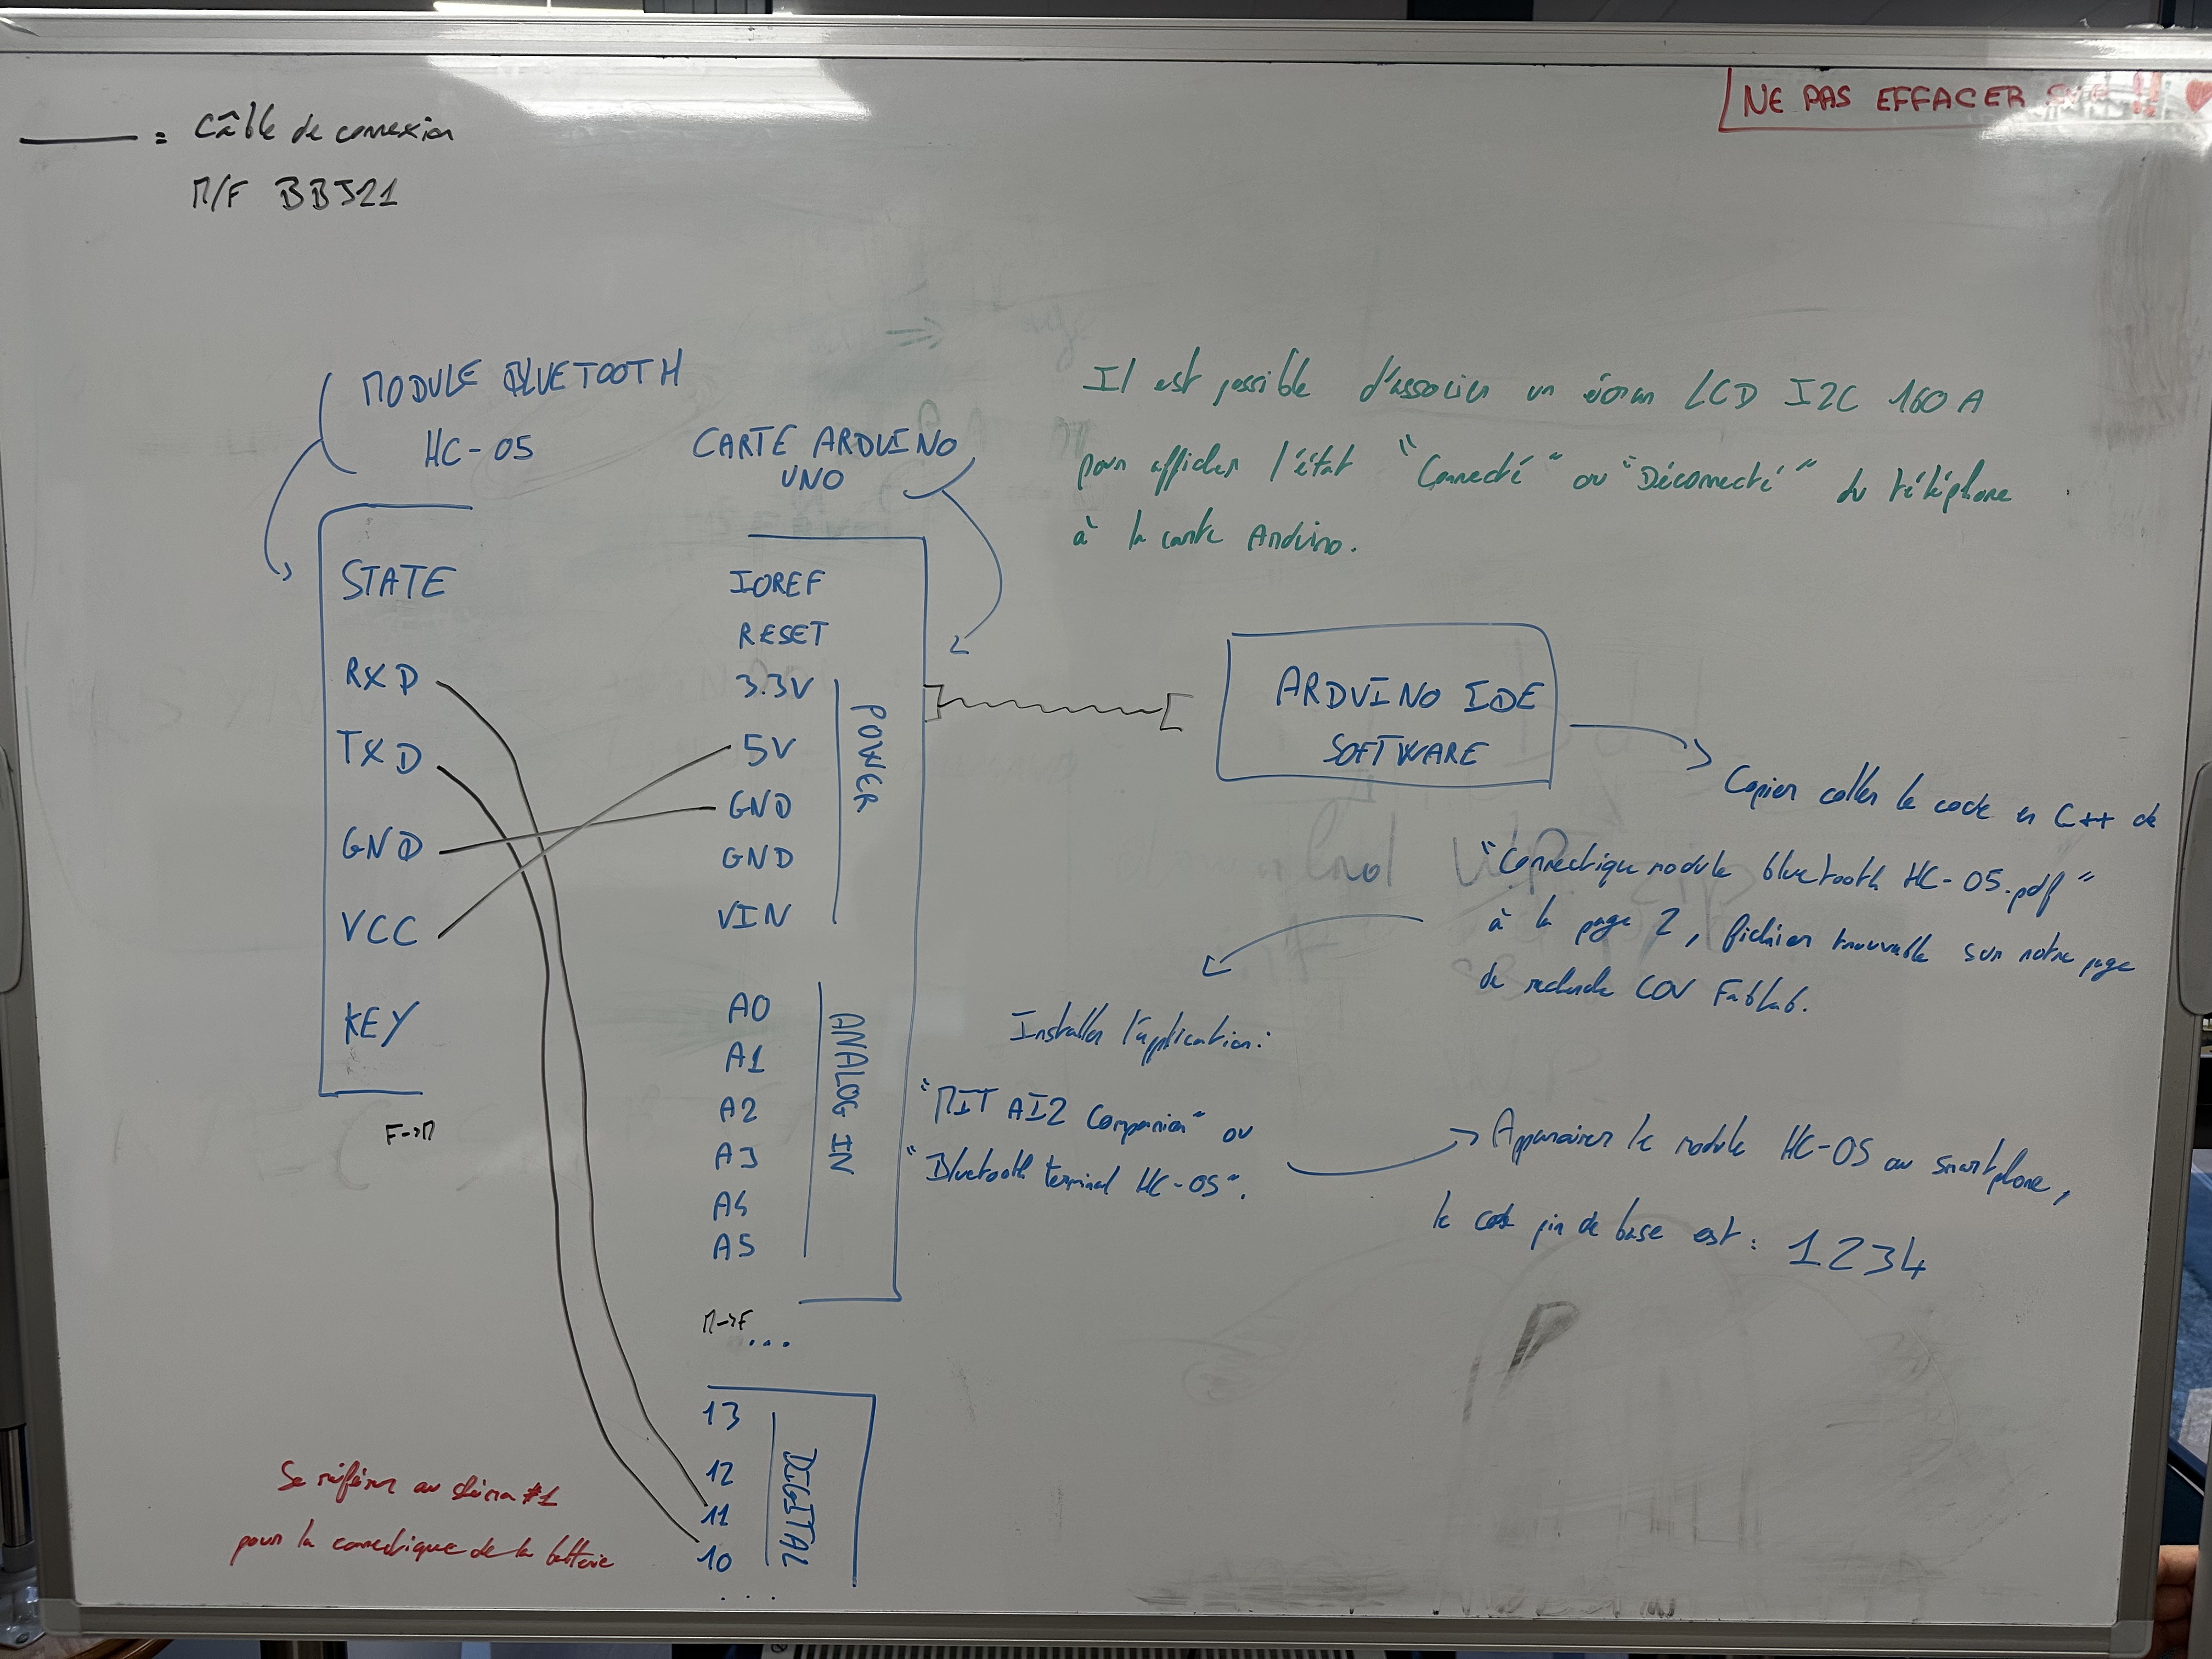 NE PAS EFFACER SVP !! ♥
= Câble de connexion
M/F BBJ21
MODULE BLUETOOTH
HC-05
STATE
RXD
TXD
GND
VCC
KEY
F->M
CARTE ARDUINO
UNO
IOREF
RESET
3.3V
5V
GND
GND
VIN
POWER
A0
A1
A2
A3
A4
A5
ANALOG IN
M->F
...
13
12
11
10
...
DIGITAL
Se référer au schéma #1
pour la connectique de la batterie
Il est possible d'associer un écran LCD I2C 160A
pour afficher l'état "Connecté" ou "Déconnecté" du téléphone
à la carte Arduino.
ARDUINO IDE
SOFTWARE
Copier coller le code en C++ de
"Connectique module bluetooth HC-05.pdf"
à la page 2, fichier trouvable sur notre page
de recherche COV Fablab.
Installer l'application:
"MIT AI2 Companion" ou
"Bluetooth terminal HC-05".
Apparairer le module HC-05 au smartphone,
le code pin de base est : 1234